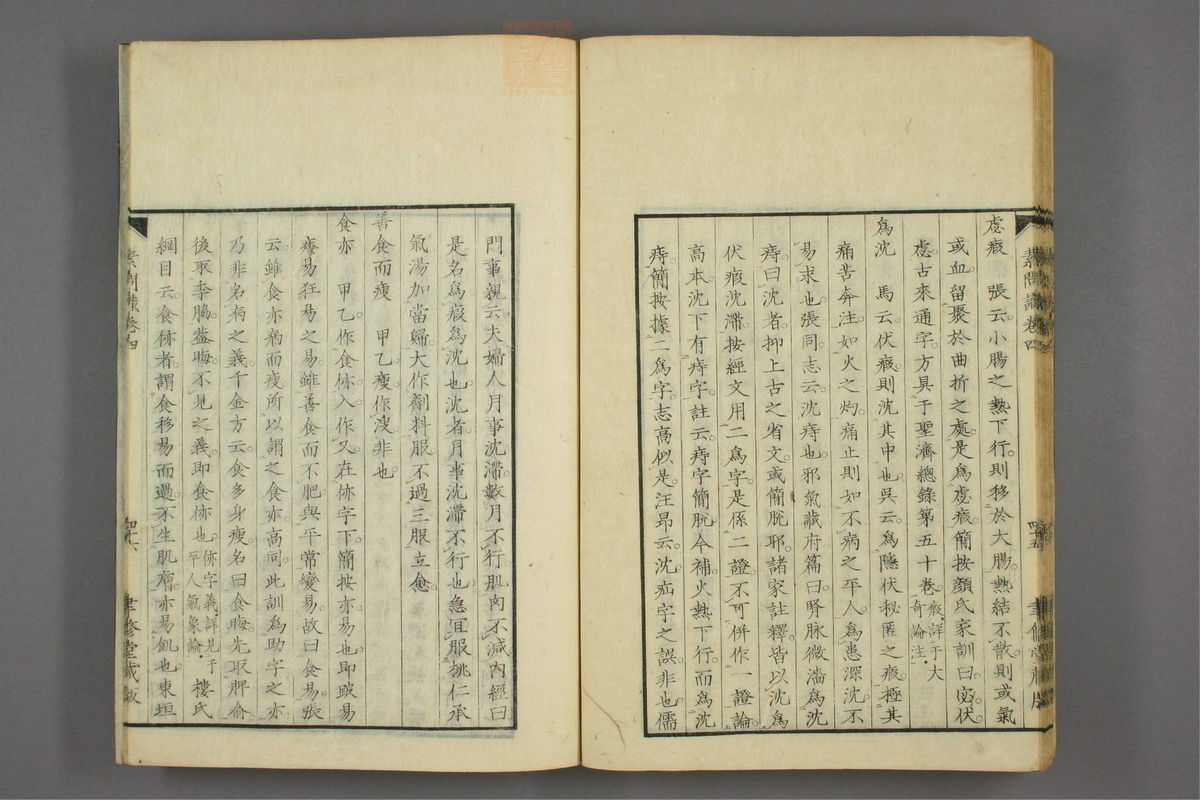 素問識卷四
虙瘕　張云。小腸之熱下行。則移於大腸。熱結不散。則或氣
或血。留聚於曲折之處。是為虙瘕。簡按顏氏家訓曰。宓伏
虙古來通字。方具于聖濟總錄第五十卷。瘕詳于大奇論注。
為沈　馬云。伏瘕則沈其中也。吳云。為隱伏秘匿之瘕。極其
痛苦奔注如火之灼。痛止則如不病之平人。為患深沈。不
易求也。張同。志云。沈痔也。邪氣藏府篇曰。腎脉微濇為沈
痔。曰沈者。抑上古之省文。或簡脫耶。諸家註釋。皆以沈為
伏瘕沈滯。按經文用二為字。是係二證。不可併作一證論。
高本沈下有痔字。註云。痔字簡脫。今補。火熱下行而為沈
痔。簡按據二為字。志高似是。汪昂云。沈疝字之誤。非也。儒
四十五
聿修堂藏版
門事親云。夫婦人月事沈滯。數月不行。肌肉不減。內經曰。
是名為瘕為沈也。沈者月事沈滯不行也。急宜服桃仁承
氣湯加當歸。大作劑料服。不過三服立愈。
善食而瘦　甲乙。瘦作溲。非也。
食亦　甲乙作食㑊。入作又。在㑊字下。簡按亦。易也。即跛易
痿易狂易之易。雖善食而不肥。與平常變易。故曰食易。張
云。雖食亦病而瘦。所以謂之食亦。高同。此訓為助字之亦。
乃非名病之義。千金方云。食多身瘦。名曰食晦。先取脾俞。
後取季脇。蓋晦。不見之義。即食㑊也。㑊字義詳見于平人氣象論。　樓氏
綱目云。食㑊者。謂食移易而過。不生肌膚。亦易飢也。東垣
素問識卷四
四十六
聿修堂藏版